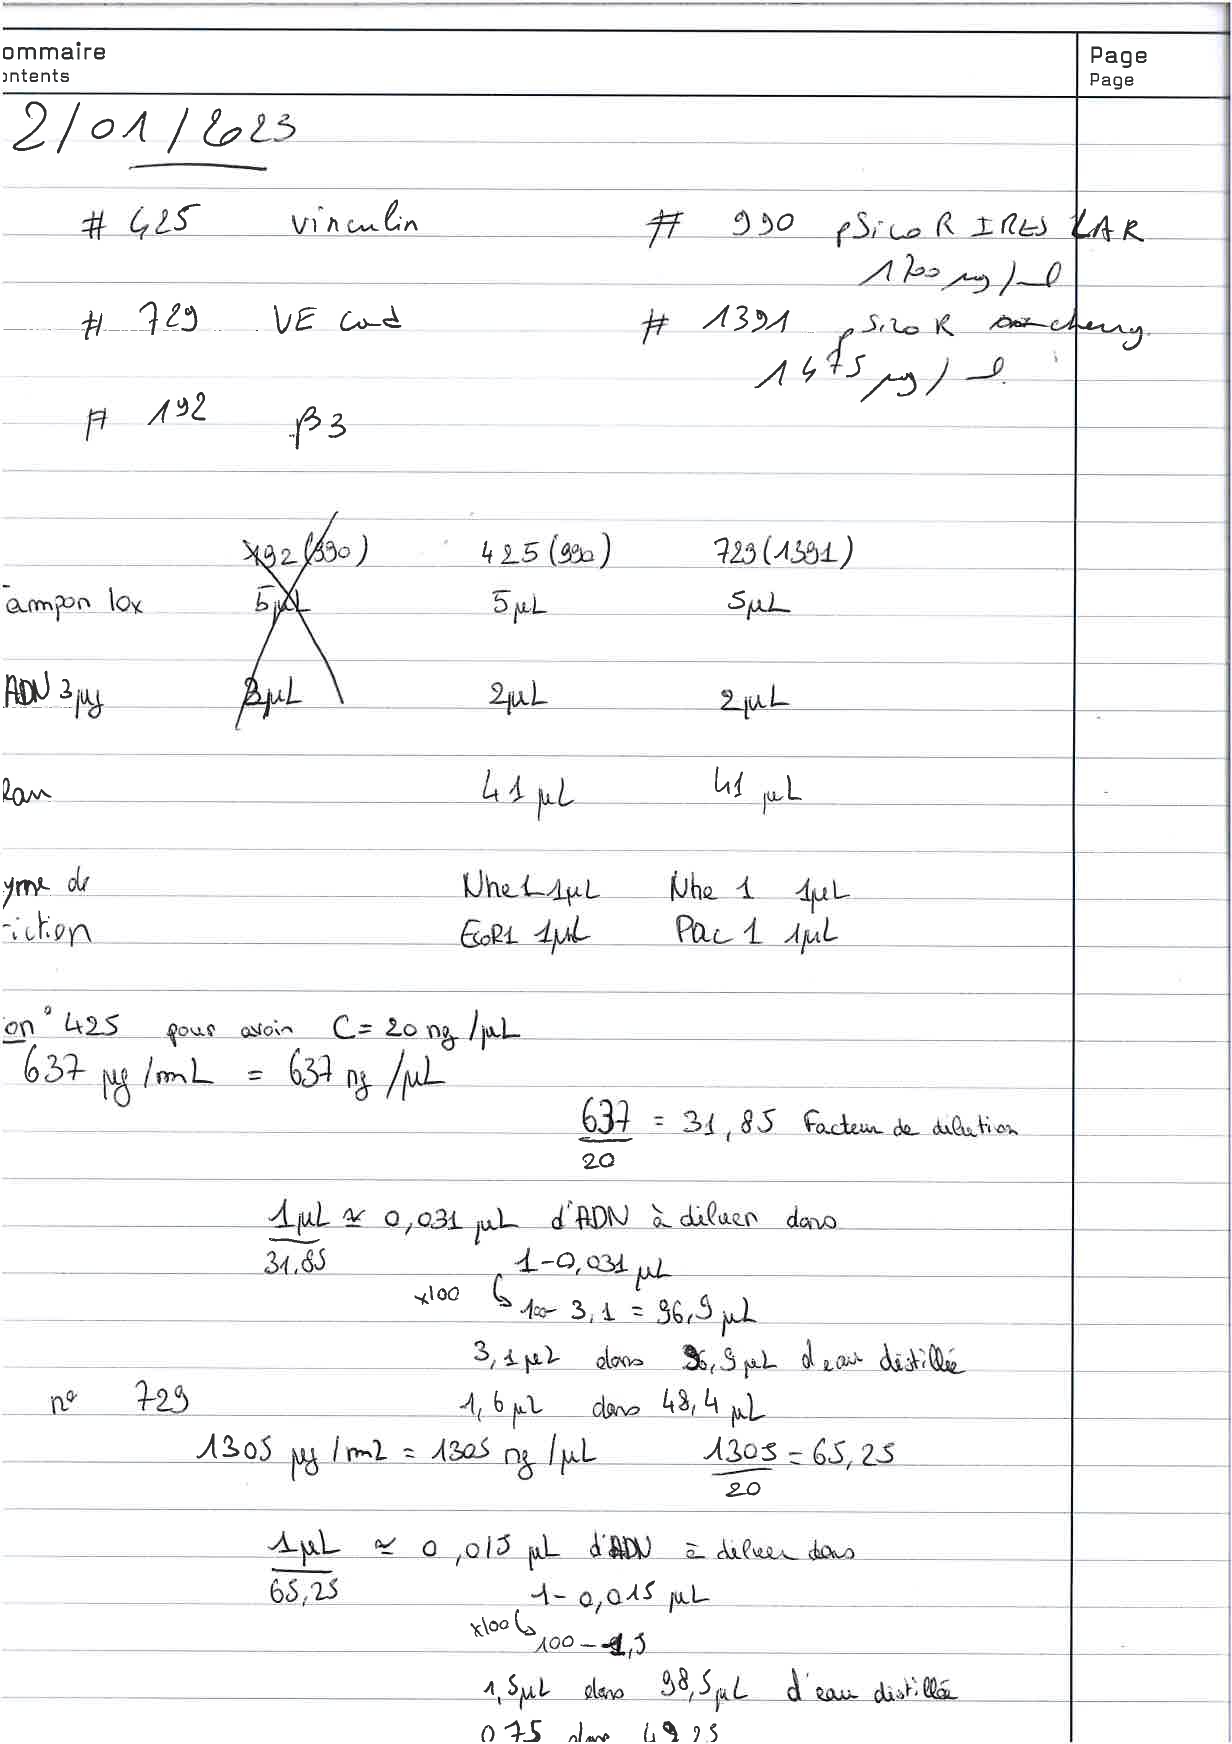 ommaire
Page
ontents
Page
2/01/2023
# 425 vinculin # 990 pSicoR IRES LAR
1700 µg/ml
# 729 VE cad # 1391 pSicoR cherry
1475 µg/ml
# 192 β3
192 (990) 425 (990) 729 (1391)
Tampon 10x 5µL 5µL 5µL
ADN 3µg 2µL 2µL 2µL
Eau 41 µL 41 µL
yme de Nhe1 1µL Nhe 1 1µL
riction EcoR1 1µL Pac 1 1µL
on° 425 pour avoir C = 20 ng/µL
637 µg/mL = 637 ng/µL
637/20 = 31,85 Facteur de dilution
1µL/31,85 ≃ 0,031 µL d'ADN à diluer dans
1-0,031 µL
x100 ↳ 100- 3,1 = 96,9 µL
3,1 µL dans 96,9 µL d'eau distillée
n° 729 1,6 µL dans 48,4 µL
1305 µg/mL = 1305 ng/µL 1305/20 = 65,25
1µL/65,25 ≃ 0,015 µL d'ADN à diluer dans
1- 0,015 µL
x100 ↳ 100 - 1,5
1,5µL dans 98,5µL d'eau distillée
0,75 dans 49,25